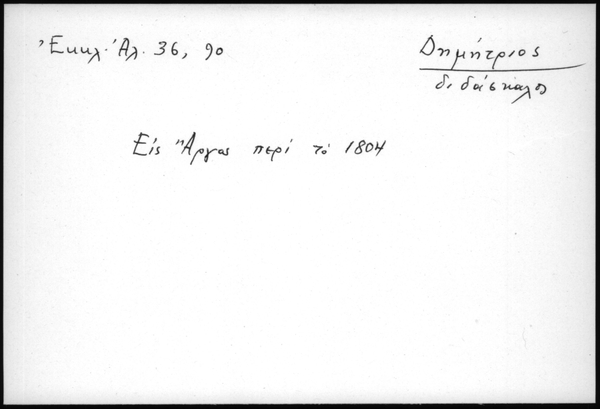 Ἐκκλ. Ἀλ. 36, 90
Δημήτριος
διδάσκαλος
Εἰς Ἄργος περί τό 1804